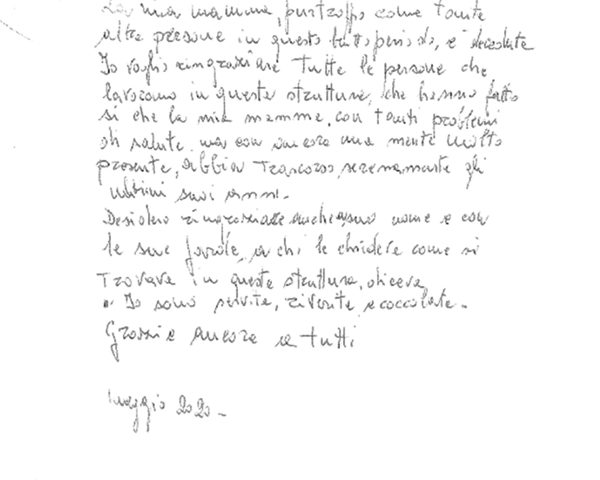 La mia mamma, purtroppo come tante
altre persone in questo brutto periodo, è deceduta
Io voglio ringraziare tutte le persone che
lavorano in questa struttura, che hanno fatto
sì che la mia mamma, con tanti problemi
di salute, ma con ancora una mente molto
presente, abbia trascorso serenamente gli
ultimi suoi anni.
Desidero ringraziare anche a suo nome e con
le sue parole, a chi le chiedeva come si
trovava in questa struttura, diceva
" Io sono servita, riverita e coccolata.
Grazie ancora a tutti
Maggio 2020.